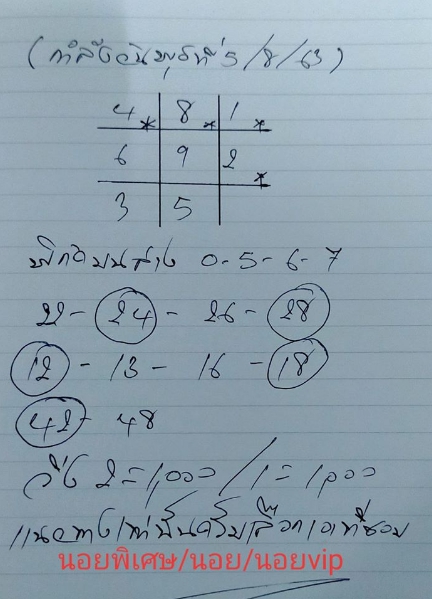 (กำลังวันพุธที่ 5/8/63)
4 8 1
6 9 2
3 5
พิกัดบนล่าง 0-5-6-7
22-24-26-28
12-13-16-18
42-48
วิ่ง 2=1,000/1=1,000
แนวทางเท่านั้นครับเลือกเอาที่ชอบ
นอยพิเศษ/นอย/นอยvip